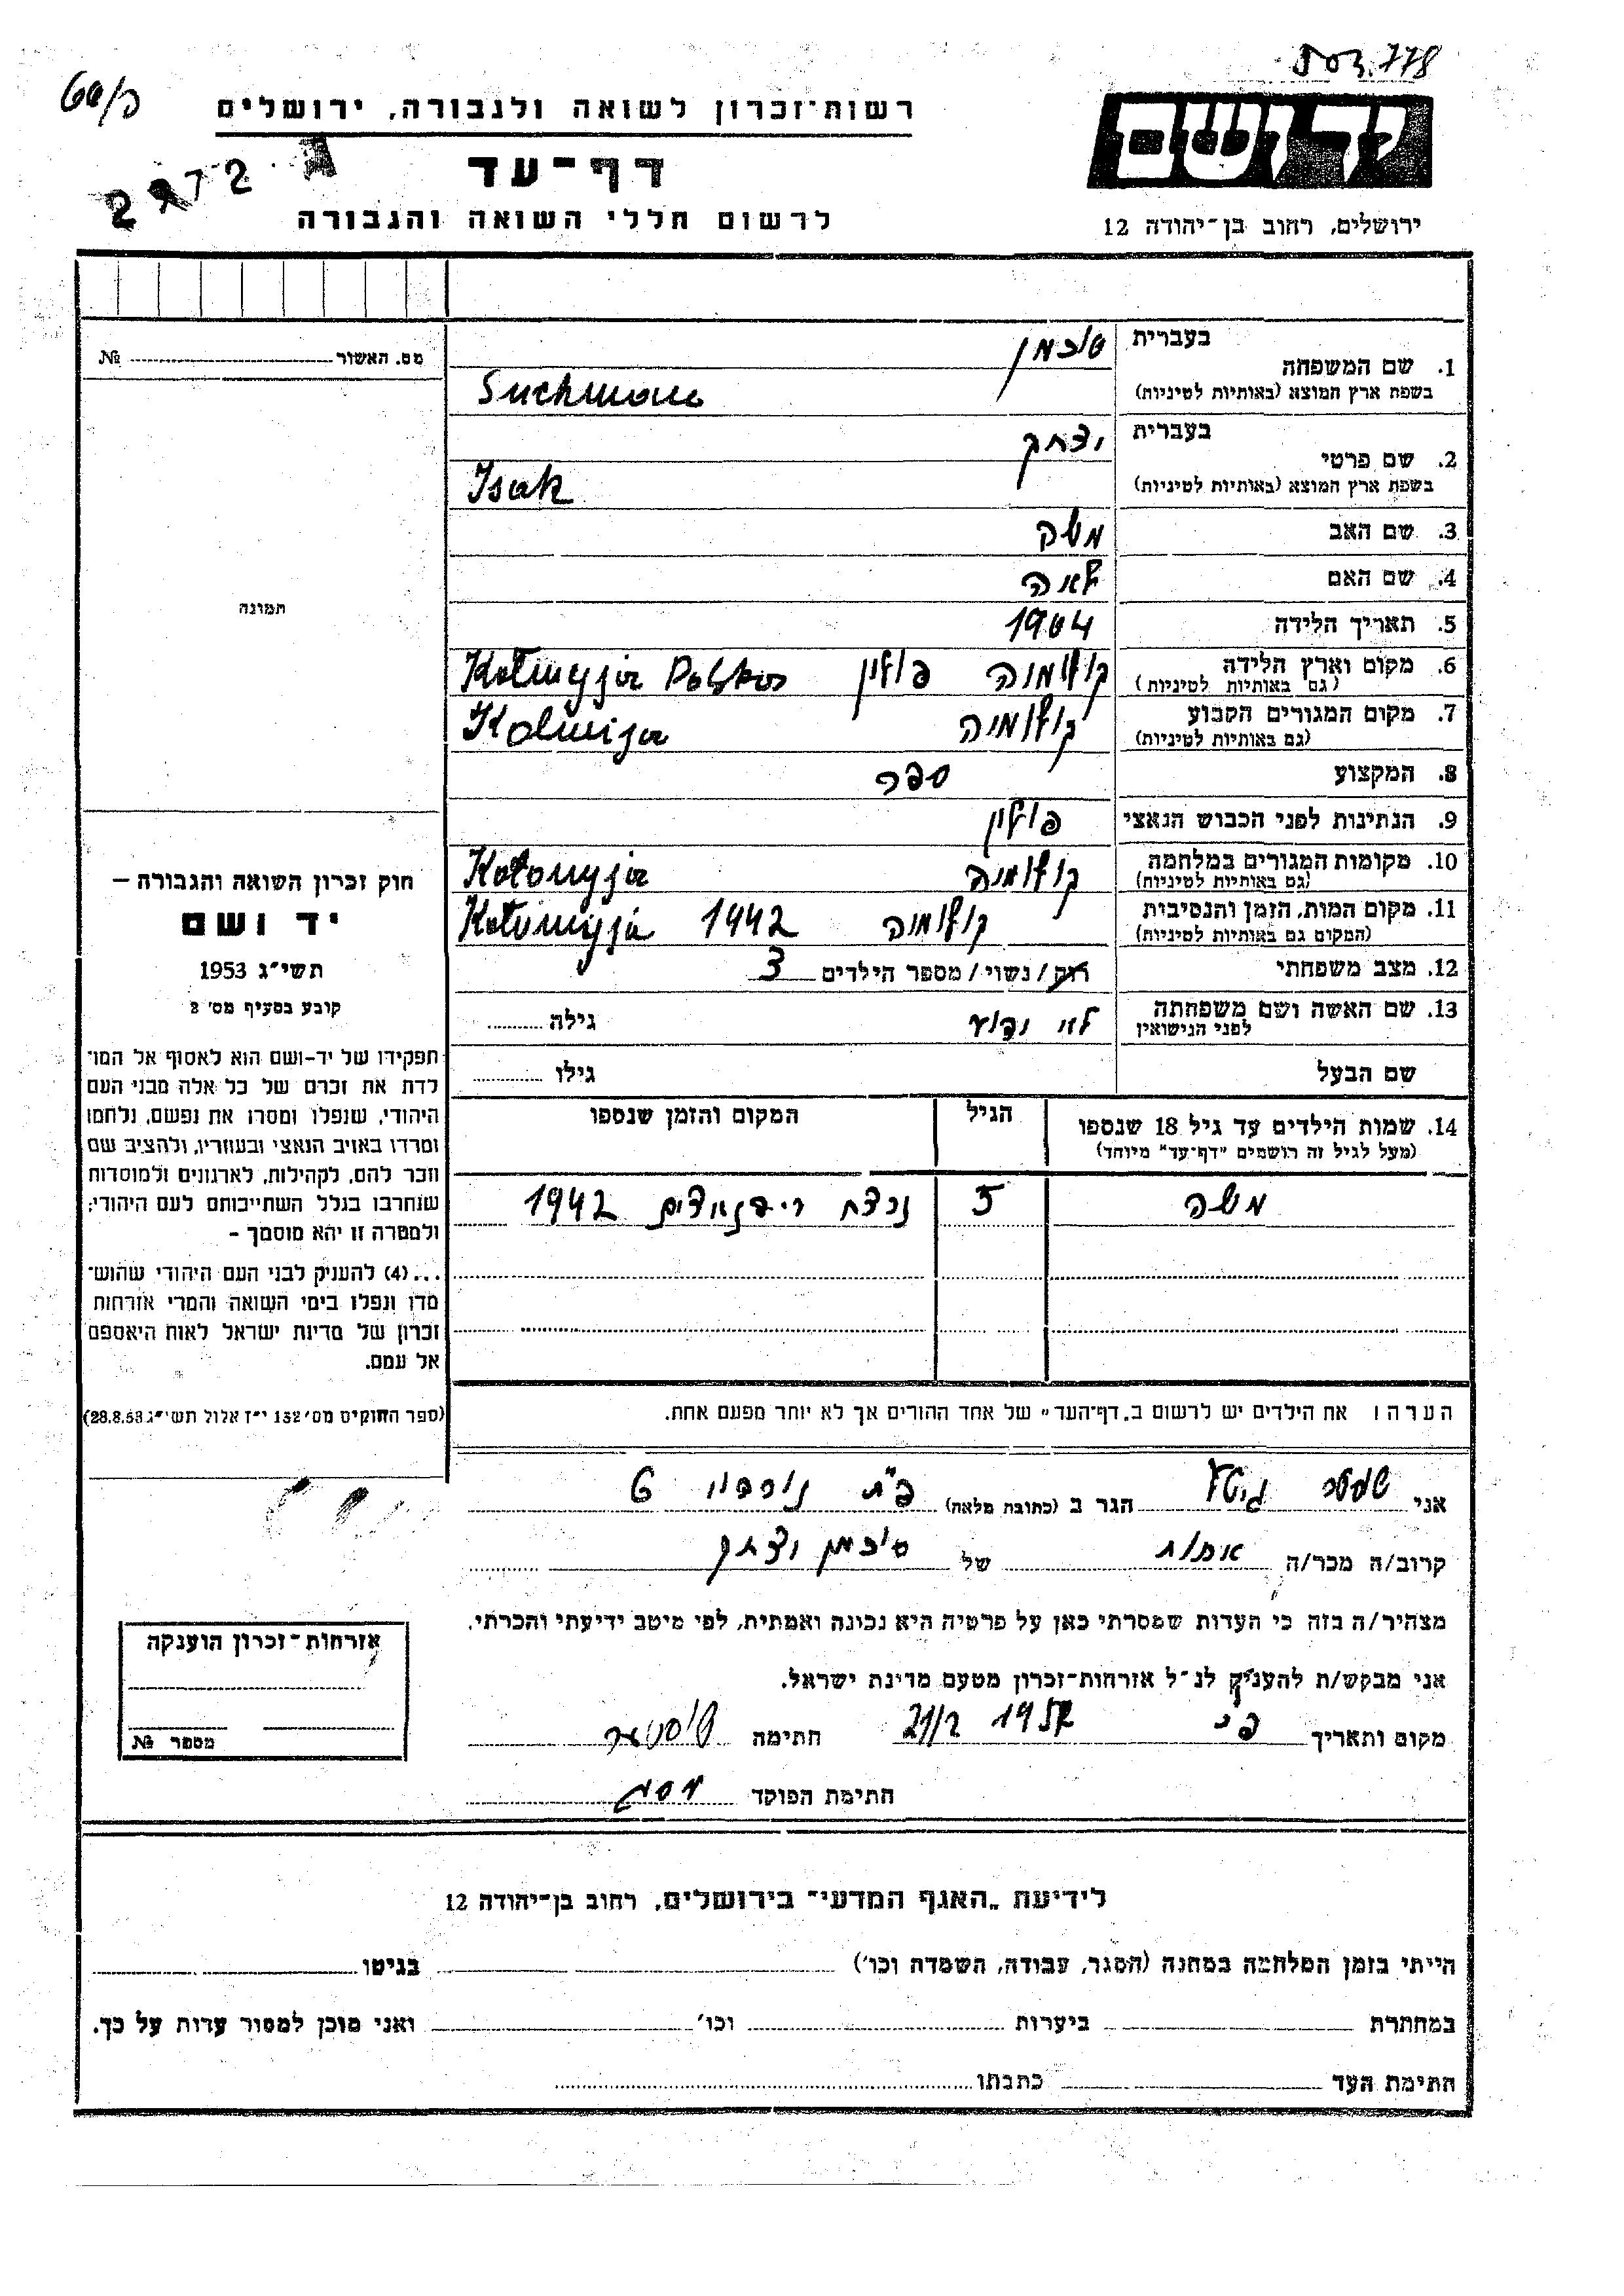 רשות־זכרון לשואה ולגבורה, ירושלים
דף־עד
לרשום חללי השואה והגבורה
יד ושם
ירושלים, רחוב בן־יהודה 12
בעברית
1. שם המשפחה סוכמן
בשפת ארץ המוצא (באותיות לטיניות) Suchman
בעברית
2. שם פרטי יצחק
בשפת ארץ המוצא (באותיות לטיניות) Isak
3. שם האב משה
4. שם האם לאה
5. תאריך הלידה 1904
6. מקום וארץ הלידה קולומיה פולין Kołomyja Polska
(גם באותיות לטיניות)
7. מקום המגורים הקבוע קולומיה Kolomija
(גם באותיות לטיניות)
8. המקצוע ספר
9. הנתינות לפני הכבוש הנאצי פולין
10. מקומות המגורים במלחמה קולומיה Kołomyja
(גם באותיות לטיניות)
11. מקום המות, הזמן והנסיבות קולומיה 1942 Kołomyja
(המקום גם באותיות לטיניות)
12. מצב משפחתי רוק / נשוי / מספר הילדים 3
13. שם האשה ושם משפחתה גילה
לפני הנישואין
שם הבעל גילו
14. שמות הילדים עד גיל 18 שנספו הגיל המקום והזמן שנספו
(מעל לגיל זה רושמים "דף־עד" מיוחד)
משה 5 נרצח 1942
הערה: את הילדים יש לרשום ב„דף־העד" של אחד ההורים אך לא יותר מפעם אחת.
מס. האשור №
תמונה
חוק זכרון השואה והגבורה –
יד ושם
תשי״ג 1953
קובע בסעיף מס׳ 2
תפקידו של יד-ושם הוא לאסוף אל המו־
לדת את זכרם של כל אלה מבני העם
היהודי, שנפלו ומסרו את נפשם, נלחמו
ומרדו באויב הנאצי ובעוזריו, ולהציב שם
וזכר להם, לקהילות, לארגונים ולמוסדות
שנחרבו בגלל השתייכותם לעם היהודי;
ולמטרה זו יהא מוסמך –
...(4) להעניק לבני העם היהודי שהוש־
מדו ונפלו בימי השואה והמרי אזרחות
זכרון של מדינת ישראל לאות היאספם
אל עמם.
(ספר החוקים מס׳ 132 י״ז אלול תשי״ג 28.8.53)
אני הגר ב (כתובת מלאה) פ״ת 6
קרוב/ה מכר/ה אחות של סוכמן יצחק
מצהיר/ה בזה כי העדות שמסרתי כאן על פרטיה היא נכונה ואמתית, לפי מיטב ידיעתי והכרתי.
אני מבקש/ת להעניק לנ״ל אזרחות־זכרון מטעם מדינת ישראל.
מקום ותאריך חתימה
חתימת הפוקד
אזרחות־זכרון הוענקה
מספר №
לידיעת „האגף המדעי״ בירושלים, רחוב בן־יהודה 12
הייתי בזמן המלחמה במחנה (הסגר, עבודה, השמדה וכו׳) בגיטו
במחתרת ביערות וכו׳ ואני מוכן למסור עדות על כך.
חתימת העד כתבתו